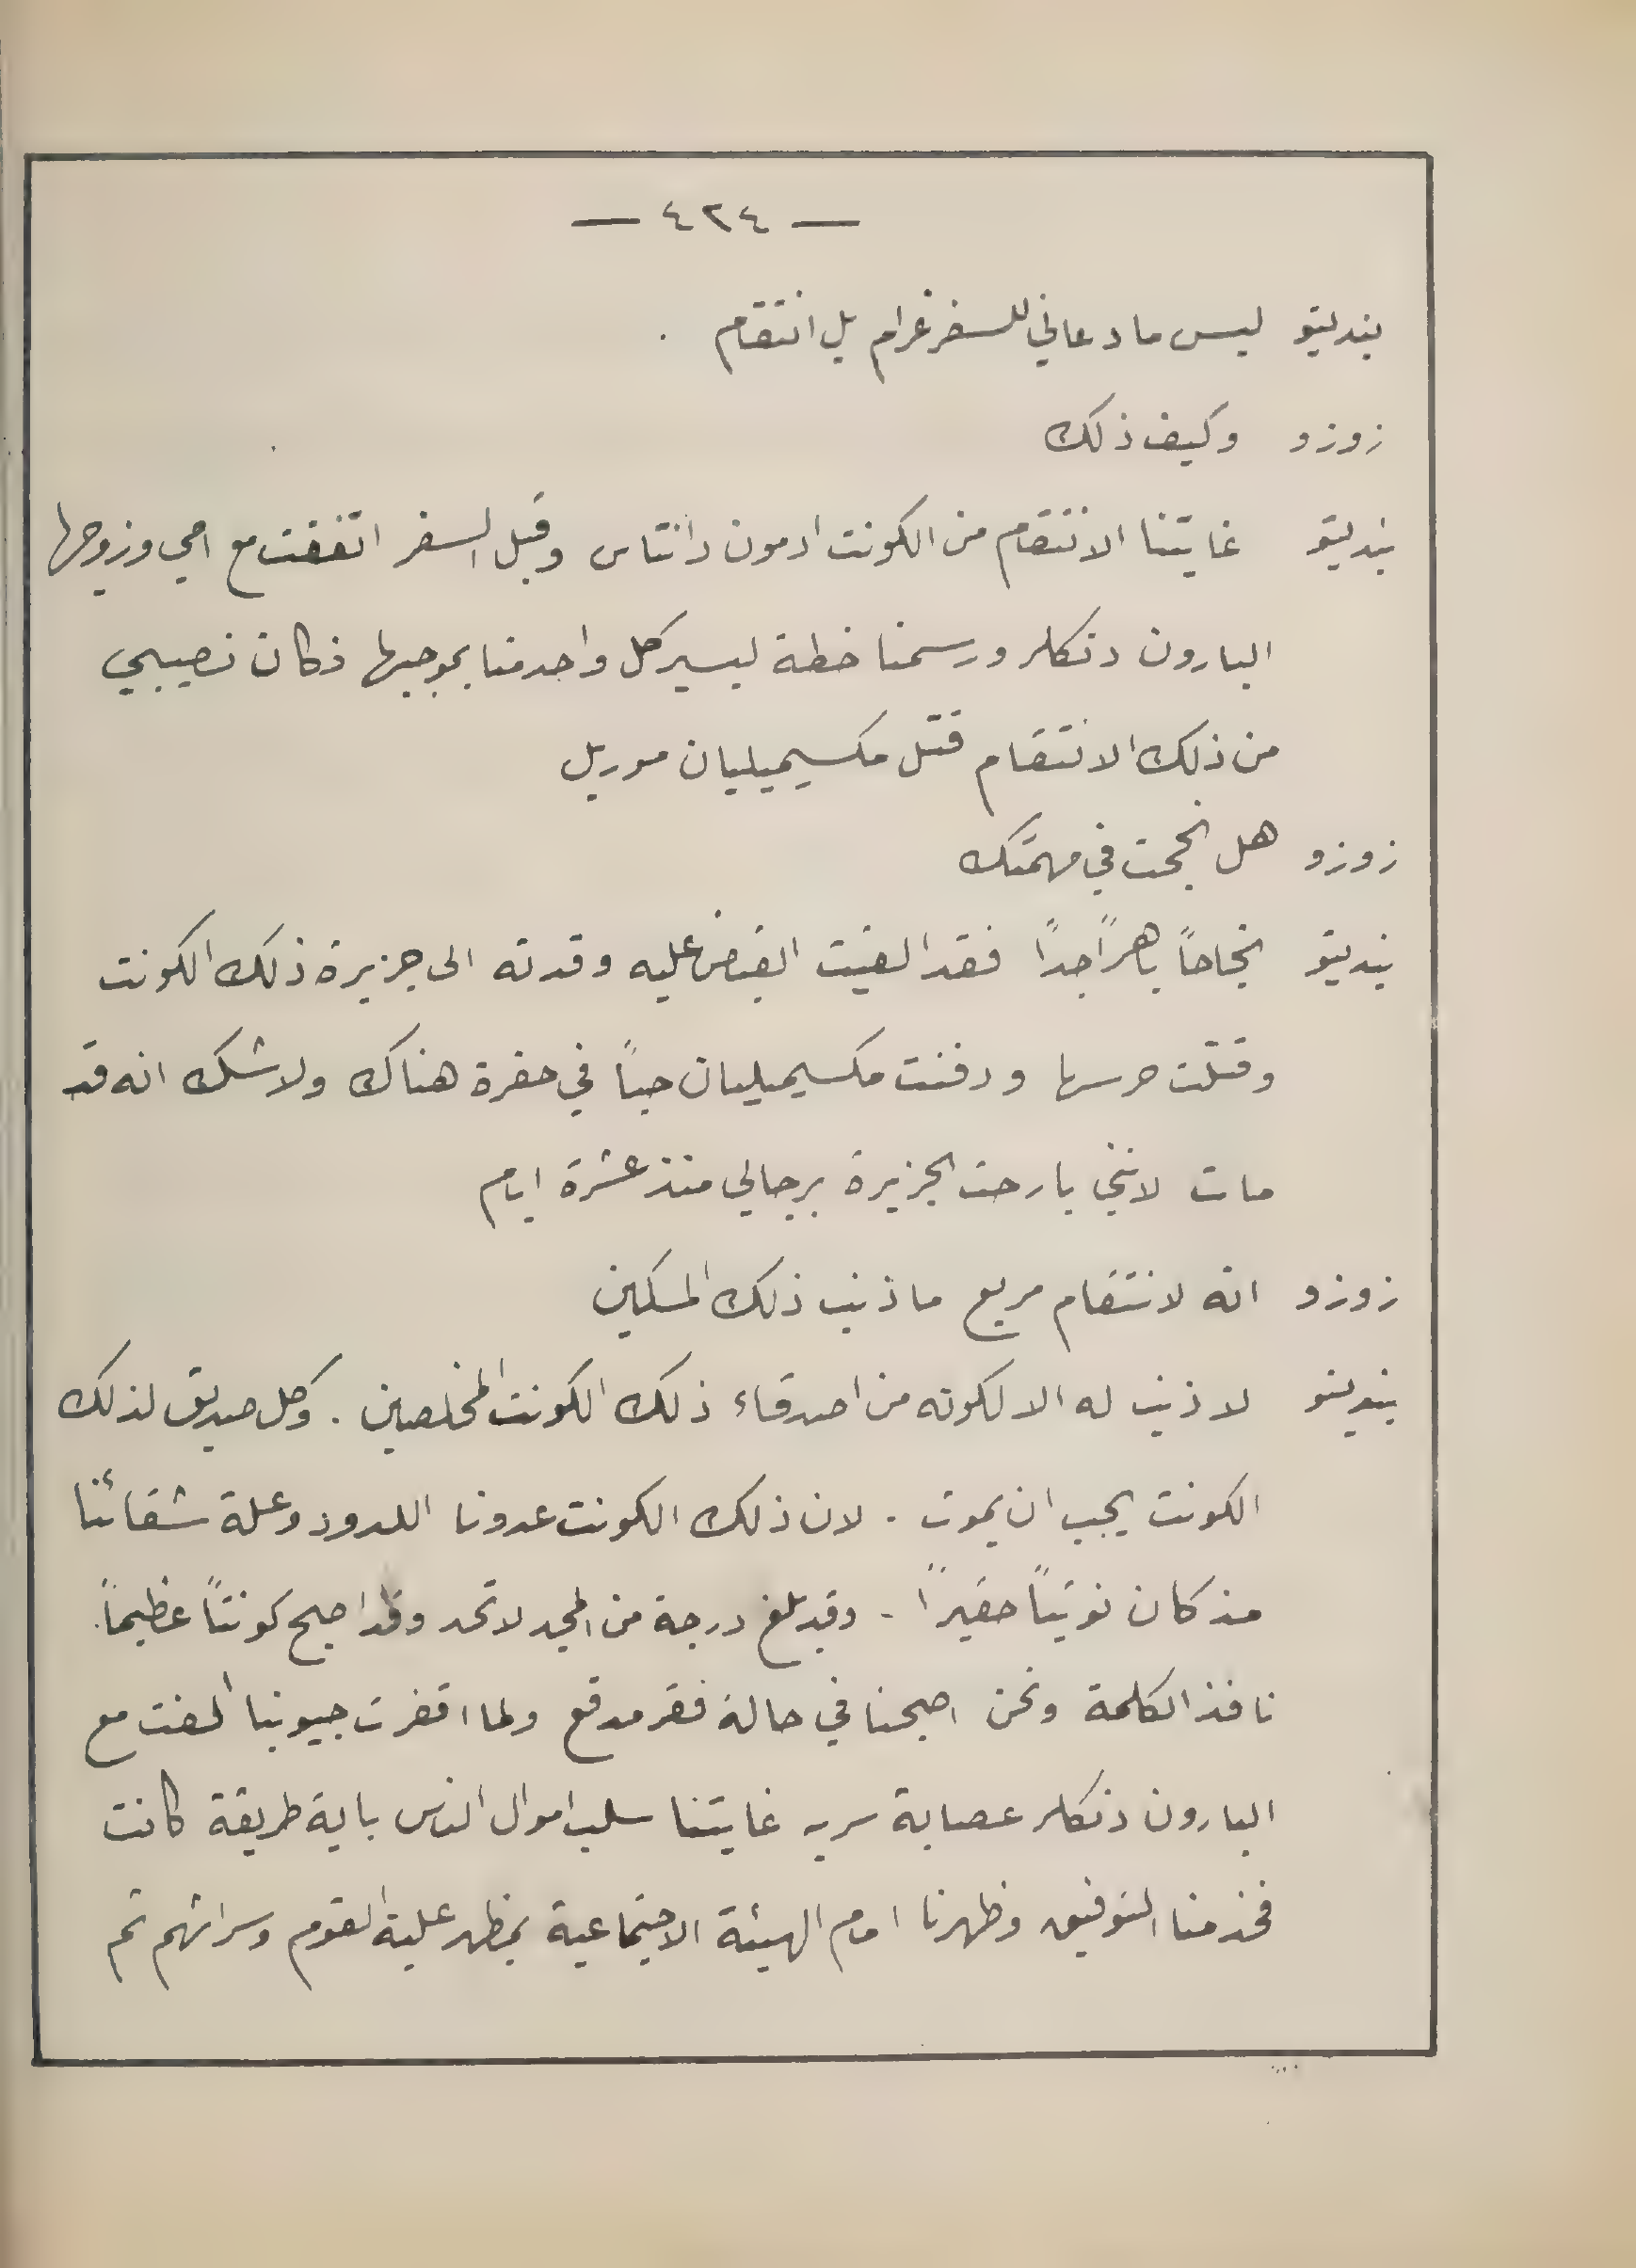 — ٤٢٤ —
بندلتو ليس ما دعاني للسفر غرام بل انتقام .
زوزو وكيف ذلك
بندلتو غايتنا الانتقام من الكونت ادمون دانتاس وقبل السفر اتفقت مع امي وزوجها
البارون دنكلر ورسمنا خطة ليسير كل واحد منا بموجبها فكان نصيبي
من ذلك الانتقام قتل مكسيميليان موريل
زوزو هل نجحت في مهمتك
بندلتو نجاحاً باهراً جداً فقد القيت القبض عليه وقدته الى جزيرة ذلك الكونت
وقتلت حرسها ودفنت مكسيميليان حياً في حفرة هناك ولا شك انه قد
مات لانني بارحت الجزيرة برجالي منذ عشرة ايام
زوزو انه لانتقام مريع ما ذنب ذلك المسكين
بندلتو لا ذنب له الا لكونه من اصدقاء ذلك الكونت المخلصين . وكل صديق لذلك
الكونت يجب ان يموت . لان ذلك الكونت عدونا اللدود وعلة شقائنا
مذ كان نوتياً حقيراً . وقد بلغ درجة من المجد لا تحد وقد اصبح كونتاً عظيماً
نافذ الكلمة ونحن اصبحنا في حالة فقر مدقع ولما اقفرت جيوبنا الفت مع
البارون دنكلر عصابة سريه غايتنا سلب اموال الناس باية طريقة كانت
فخدمنا التوفيق وظهرنا امام الهيئة الاجتماعية بمظهر علية القوم وسراتهم ثم